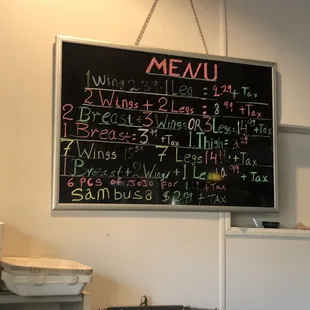 MENU
1 Wing 2.39 1 Leg = 2.29 + Tax
2 Wings + 2 Legs = 8.99 + Tax
2 Breast + 3 Wings OR 3 Legs = 14 + Tax
1 Breast = 3.99 + Tax 1 Thigh = 3.29
7 Wings 15 7 Legs 14 + Tax
1 Breast + 2 Wings + 1 Leg + Tax
6 PCS of JoJo For 1 + Tax
Sambusa $2.79 + TAX